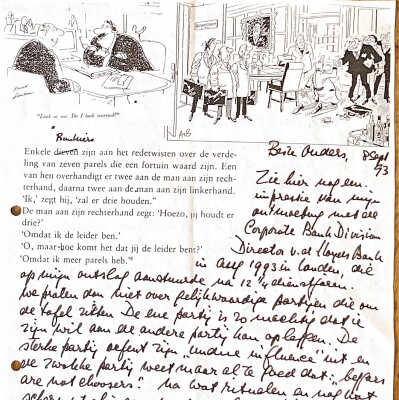 "Look at me: Do I look worried?"
Bankiers
Enkele dieven zijn aan het redetwisten over de verde-
ling van zeven parels die een fortuin waard zijn. Een
van hen overhandigt er twee aan de man aan zijn rech-
terhand, daarna twee aan de man aan zijn linkerhand.
'Ik', zegt hij, 'zal er drie houden.'
De man aan zijn rechterhand zegt: 'Hoezo, jij houdt er
drie?'
'Omdat ik de leider ben.'
'O, maar hoe komt het dat jij de leider bent?'
'Omdat ik meer parels heb.'
Beste Ouders, 8 Sept
93
Zie hier nog een
impressie van mijn
ontmoeting met de
Corporate Bank Division
Director v.d. Lloyds Bank
in aug 1993 in Londen, die
op mijn ontslag aanstuurde na 12 ½ dienstjaren.
We praten dan niet over gelijkwaardige partijen die om
de tafel zitten. De ene partij is zo machtig dat ie
zijn wil aan de andere partij kan opleggen. De
sterke partij oefent zijn "undue influence" uit en
de zwakke partij weet maar al te goed dat: beggars
are not choosers! Na wat rituelen en nog wat